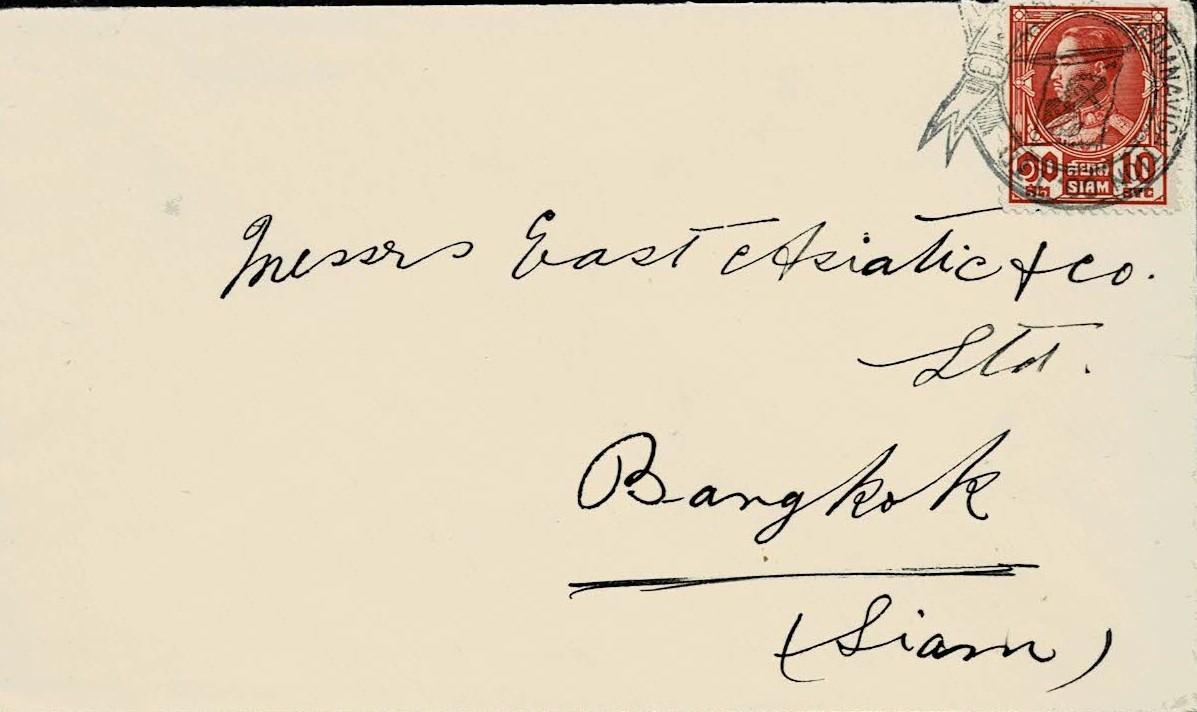 ๑๐ สยาม 10
สต. SIAM STG.
Messrs East Asiatic & Co.
Ltd.
Bangkok
(Siam)